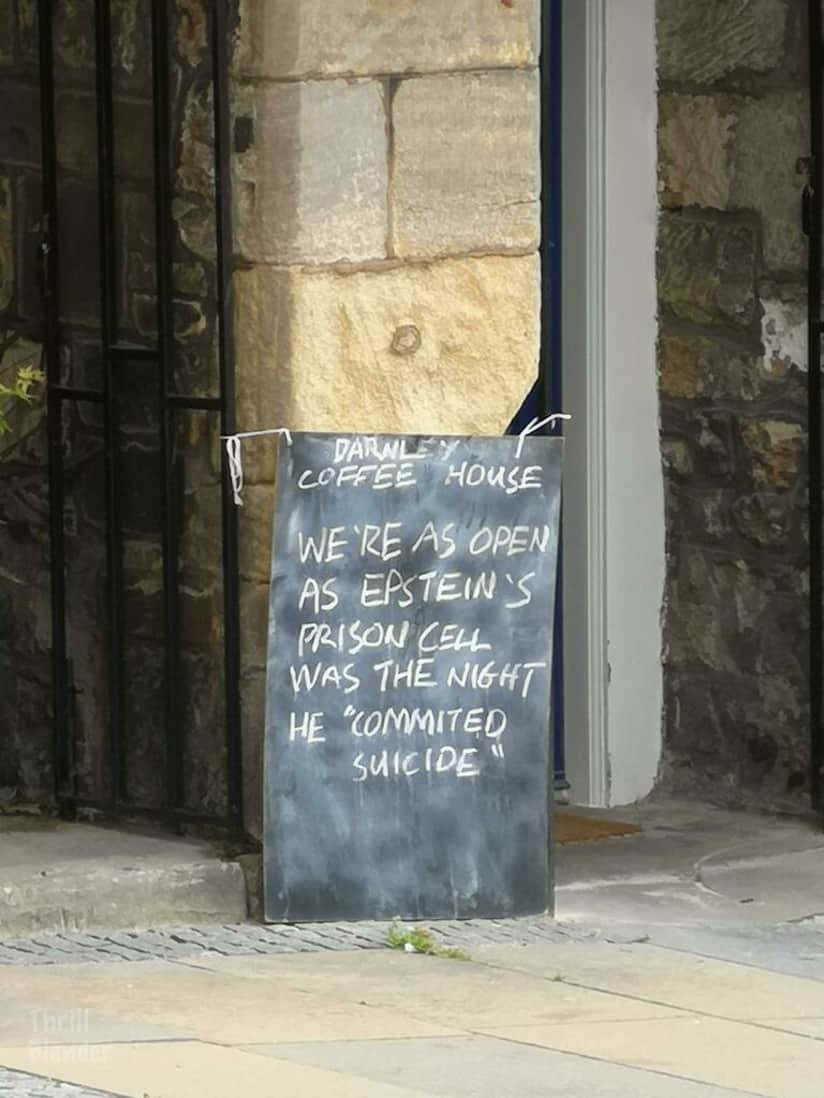 DARNLEY
COFFEE HOUSE
WE'RE AS OPEN
AS EPSTEIN'S
PRISON CELL
WAS THE NIGHT
HE "COMMITED
SUICIDE"
Thrill
Blender